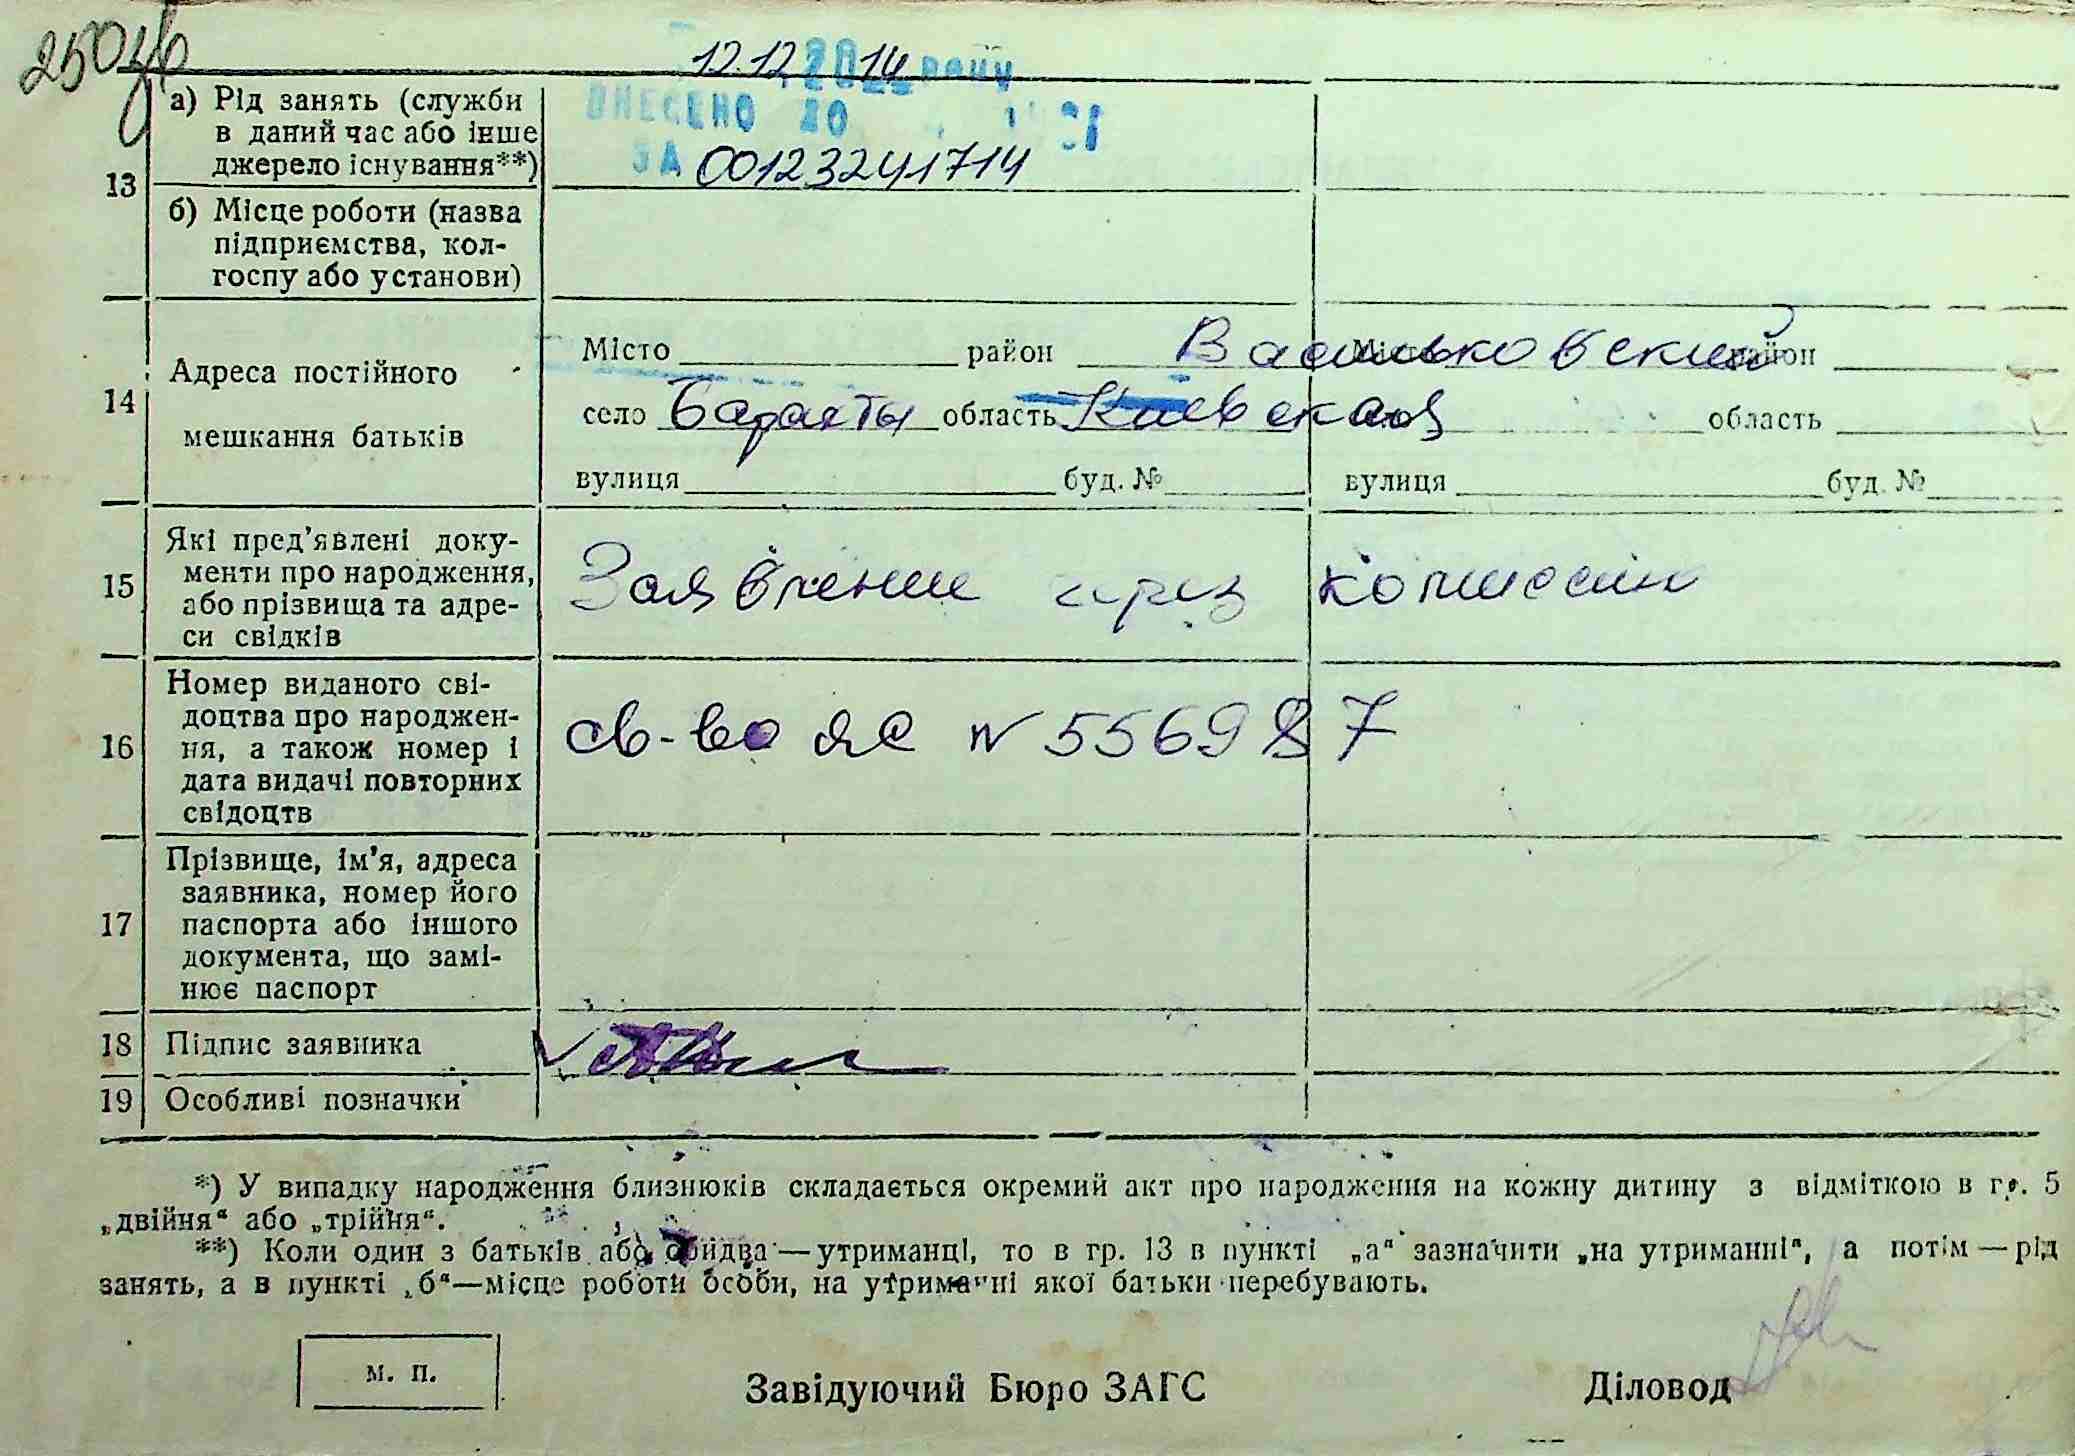 12.12 2014 року
ВНЕСЕНО ДО
ЗА 00123241714
13
а) Рід занять (служби
в даний час або інше
джерело існування**)
б) Місце роботи (назва
підприємства, кол-
госпу або установи)
14
Адреса постійного
мешкання батьків
Місто район Васильковский Місто район
село Барахты область Киевская область
вулиця буд. № вулиця буд. №
15
Які пред’явлені доку-
менти про народження,
або прізвища та адре-
си свідків
Заявление через комиссию
16
Номер виданого сві-
доцтва про народжен-
ня, а також номер і
дата видачі повторних
свідоцтв
св-во ЯС N 556987
17
Прізвище, ім’я, адреса
заявника, номер його
паспорта або іншого
документа, що замі-
нює паспорт
18 Підпис заявника
19 Особливі позначки
*) У випадку народження близнюків складається окремий акт про народження на кожну дитину з відміткою в гр. 5
„двійня“ або „трійня“.
**) Коли один з батьків або обидва — утриманці, то в гр. 13 в пункті „а“ зазначити „на утриманні“, а потім — рід
занять, а в пункті „б“—місце роботи особи, на утриманні якої батьки перебувають.
м. п.
Завідуючий Бюро ЗАГС Діловод